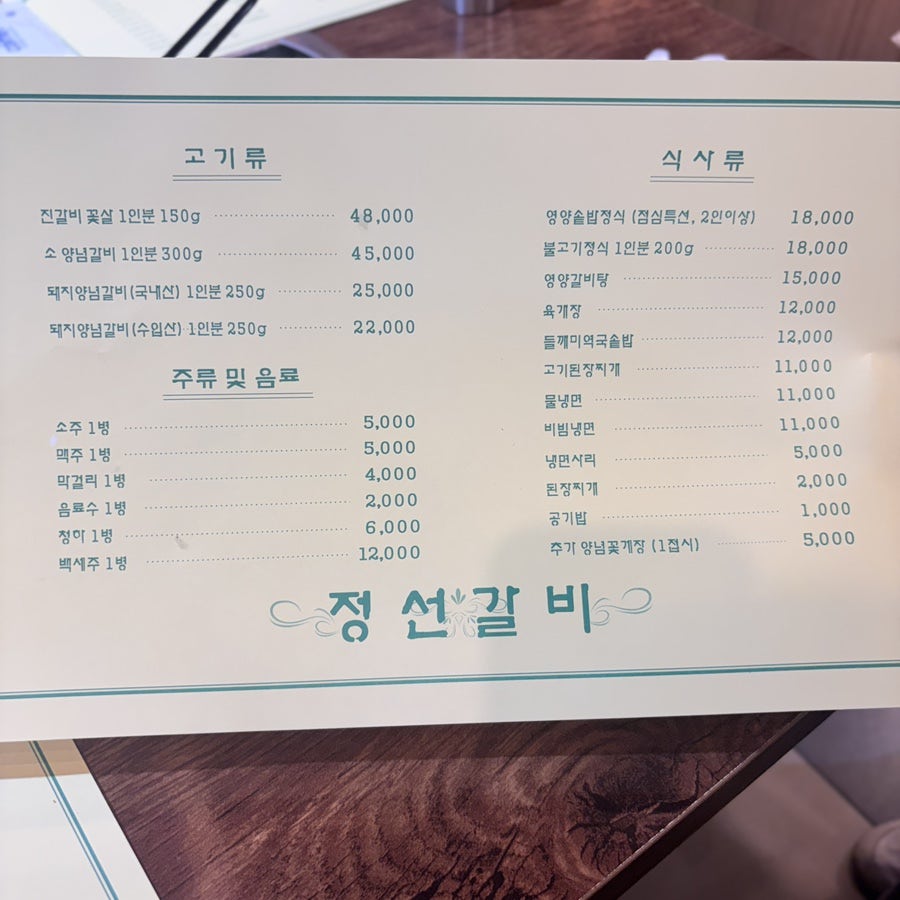 고기류
진갈비 꽃살 1인분 150g 48,000
소 양념갈비 1인분 300g 45,000
돼지양념갈비(국내산) 1인분 250g 25,000
돼지양념갈비(수입산) 1인분 250g 22,000
주류 및 음료
소주 1병 5,000
맥주 1병 5,000
막걸리 1병 4,000
음료수 1병 2,000
청하 1병 6,000
백세주 1병 12,000
식사류
영양솥밥정식 (점심특선, 2인이상) 18,000
불고기정식 1인분 200g 18,000
영양갈비탕 15,000
육개장 12,000
들깨미역국솥밥 12,000
고기된장찌개 11,000
물냉면 11,000
비빔냉면 11,000
냉면사리 5,000
된장찌개 2,000
공기밥 1,000
추가 양념꽃게장 (1접시) 5,000
정선갈비